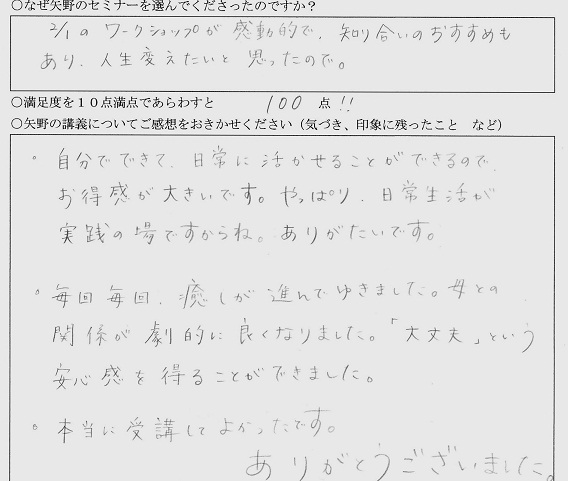 ○なぜ矢野のセミナーを選んでくださったのですか？
2/1の ワークショップが 感動的で、知り合いのおすすめも
あり、人生変えたいと 思ったので。
○満足度を１０点満点であらわすと 100 点 !!
○矢野の講義についてご感想をおきかせください（気づき、印象に残ったこと など）
。自分でできて、日常に活かせることができるので、
お得感が大きいです。やっぱり、日常生活が
実践の場ですからね。ありがたいです。
。毎回毎回、癒しが進んでゆきました。母との
関係が劇的に良くなりました。「大丈夫」という
安心感を得ることができました。
。本当に受講してよかったです。
ありがとうございました。